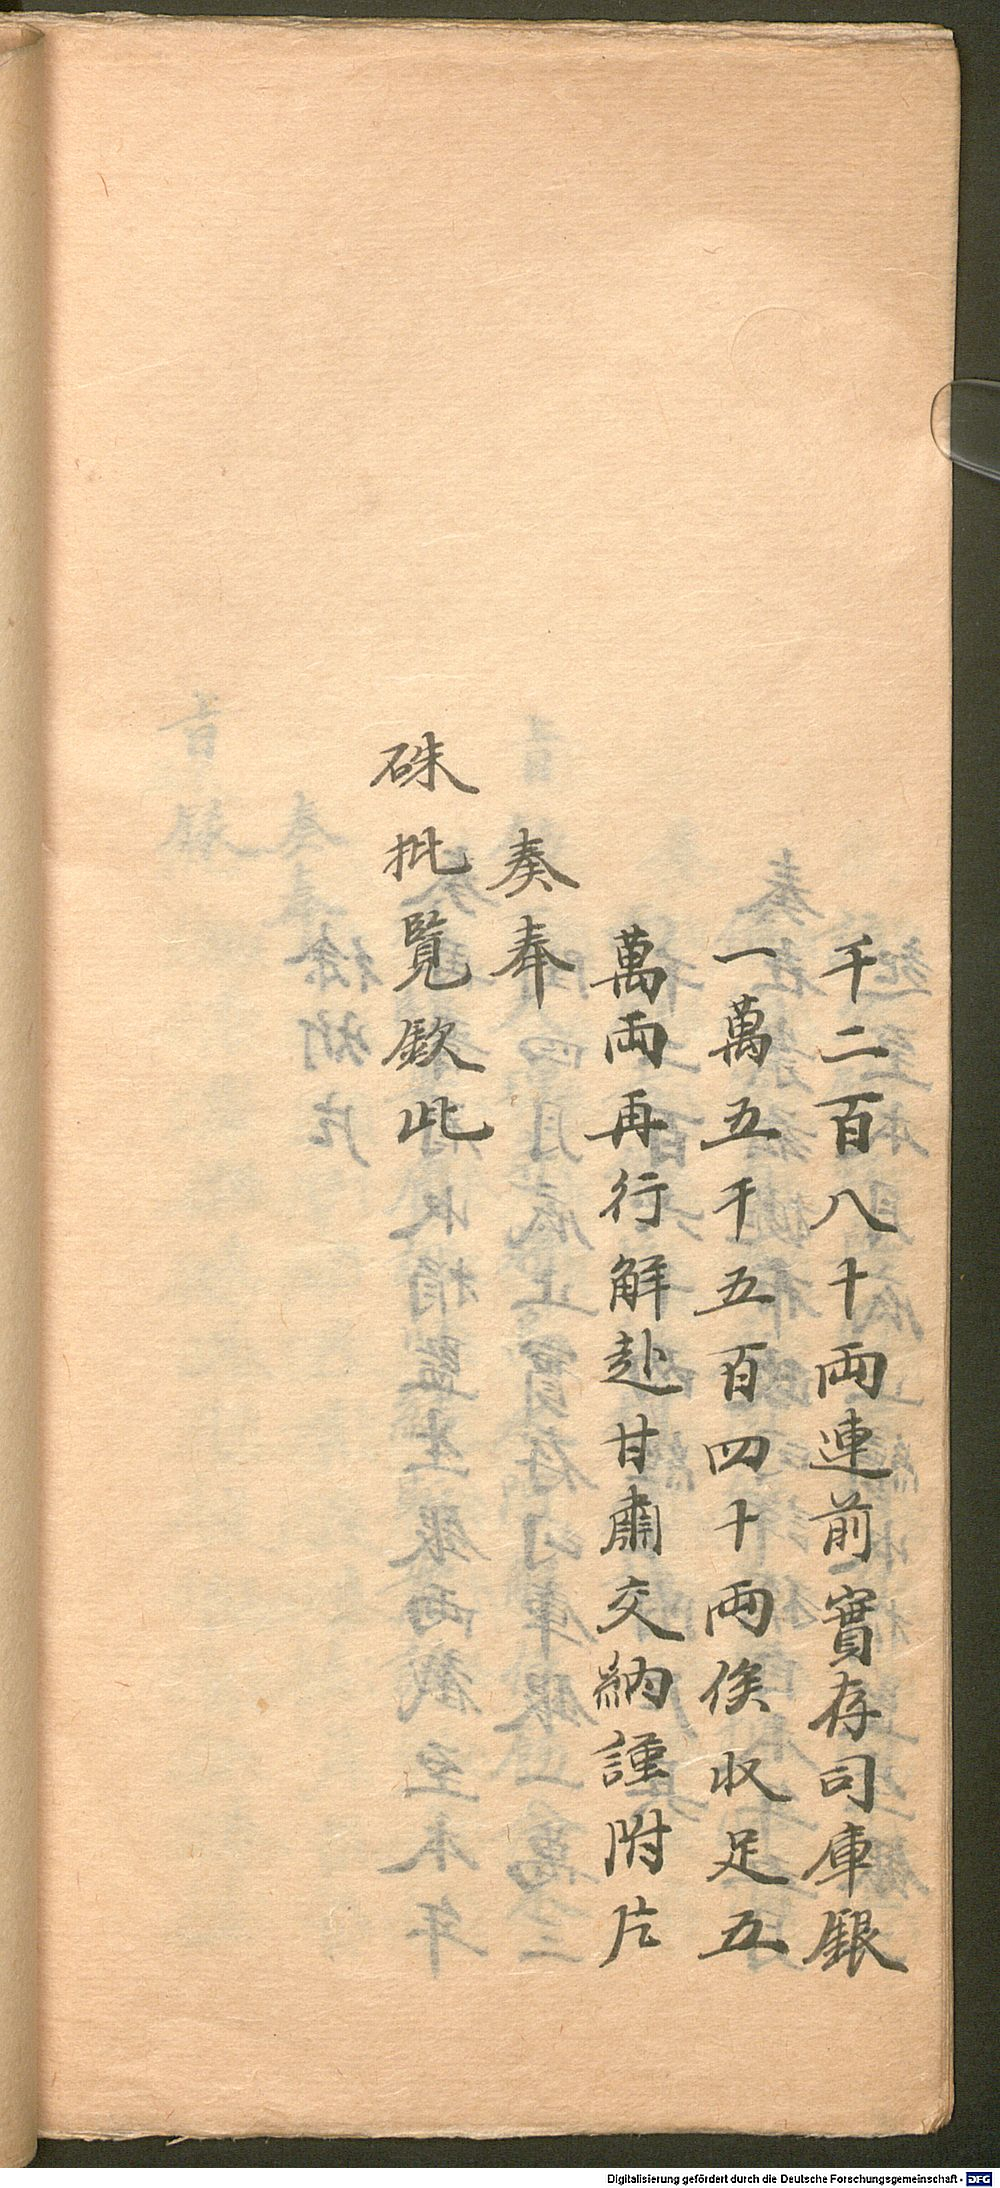 千二百八十兩連前實存司庫銀
一萬五千五百四十兩俟收足五
萬兩再行解赴甘肅交納謹附片
奏奉
硃批覽欽此
Digitalisierung gefördert durch die Deutsche Forschungsgemeinschaft - DFG